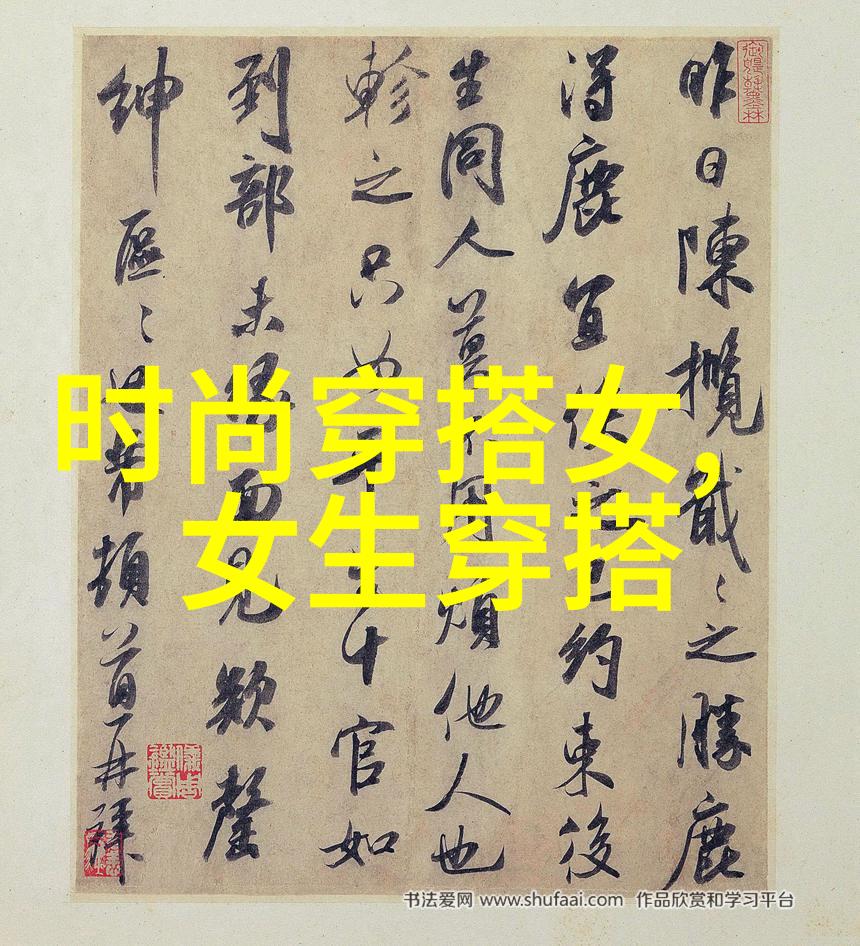 昨日陳攬戢〻之勝鹿
得鹿宜 約束後
生同人莫 煩他人也
軫之只 十官如
到部未 面見欵罄
紳區〻 芾頓首再拜
时尚穿搭女,
女生穿搭
书法爱网 www.shufaai.com 作品欣赏和学习平台